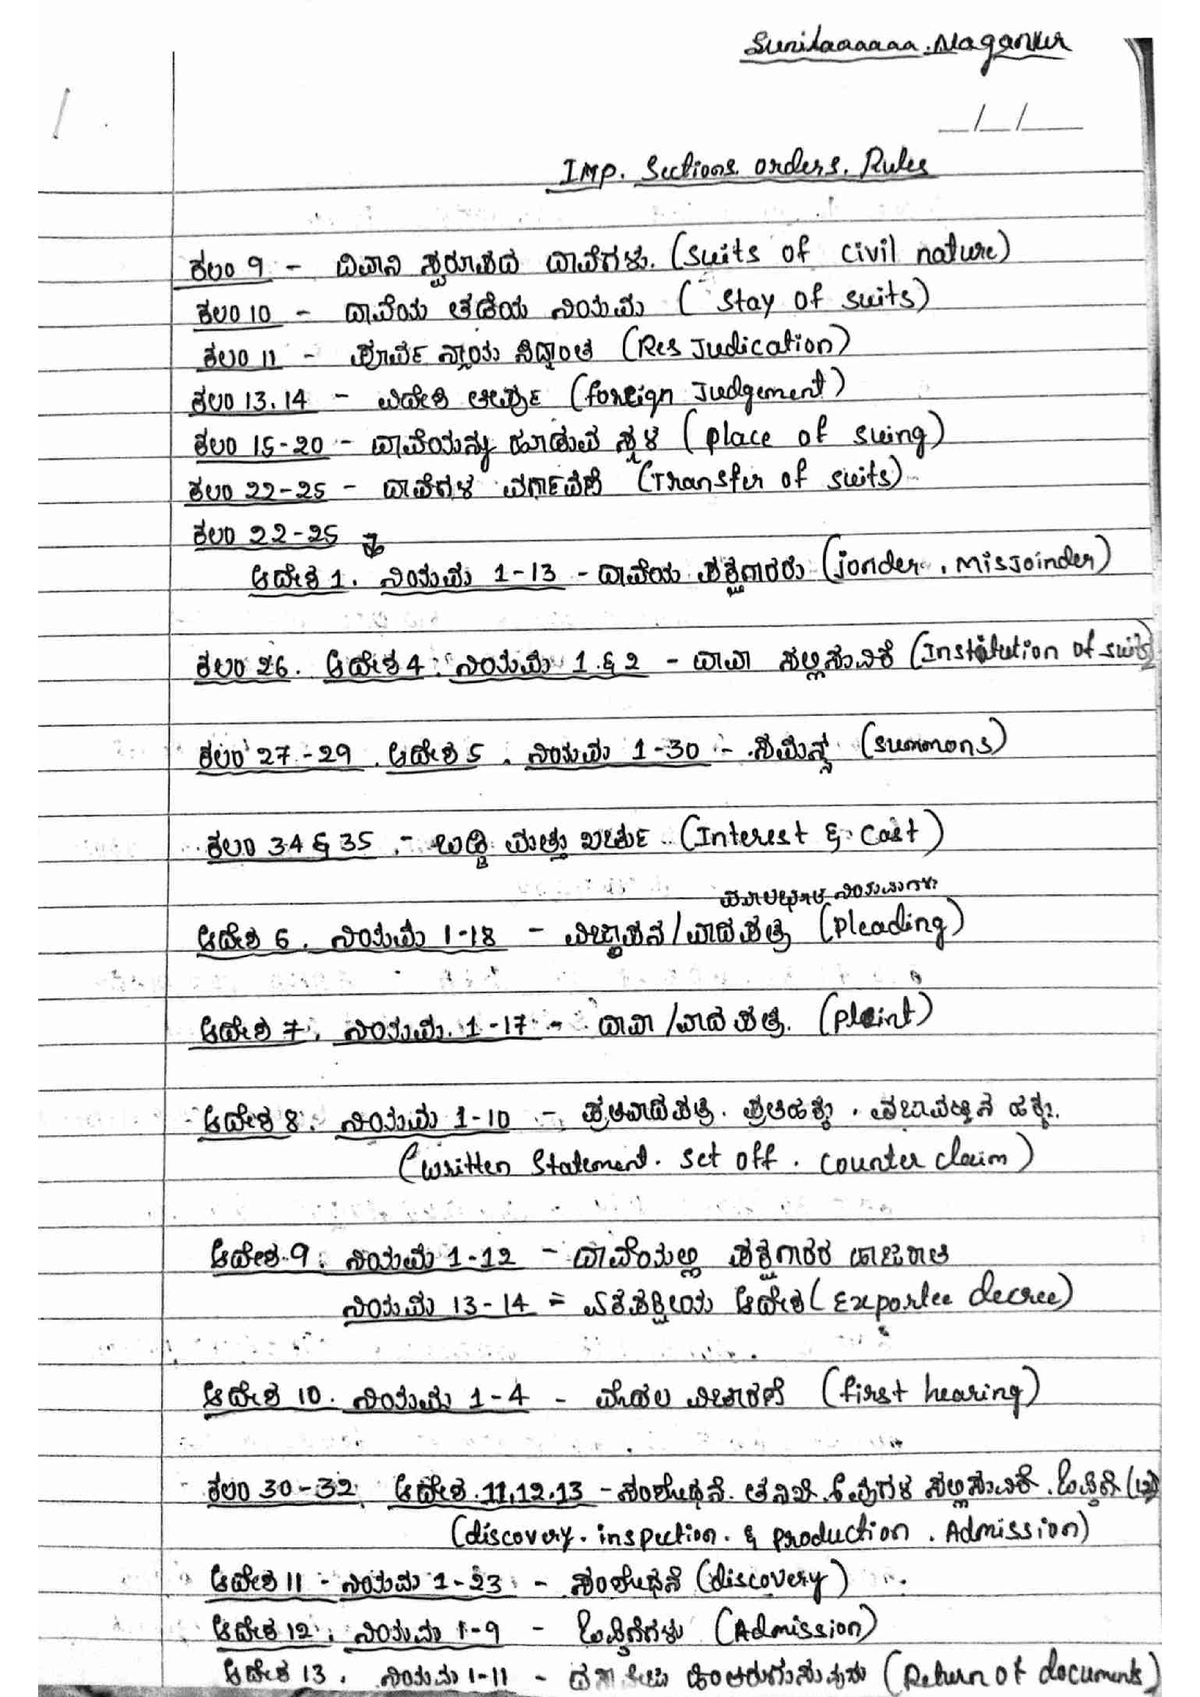 Sunitaaaaaa.Naganur
_/_/_
Imp. Sections. orders. Rules
ಕಲಂ 9 - ದಿವಾನಿ ಸ್ವರೂಪದ ದಾವೆಗಳು. (suits of civil nature)
ಕಲಂ 10 - ದಾವೆಯ ತಡೆಯ ನಿಯಮ ( Stay of suits)
ಕಲಂ 11 - ಪೂರ್ವ ನ್ಯಾಯ ಸಿದ್ಧಾಂತ (Res Judication)
ಕಲಂ 13.14 - ವಿದೇಶಿ ತೀರ್ಪು (foreign Judgement)
ಕಲಂ 15-20 - ದಾವೆಯನ್ನು ಹೂಡುವ ಸ್ಥಳ (place of suing)
ಕಲಂ 22-25 - ದಾವೆಗಳ ವರ್ಗಾವಣೆ (Transfer of suits)
ಕಲಂ 22-25
ಆದೇಶ 1. ನಿಯಮ 1-13 - ದಾವೆಯ ಪಕ್ಷಗಾರರು (jonder. Misjoinder)
ಕಲಂ 26. ಆದೇಶ 4. ನಿಯಮ 1 & 2 - ದಾವಾ ಸಲ್ಲಿಸುವಿಕೆ (Institution of suits)
ಕಲಂ 27-29. ಆದೇಶ 5. ನಿಯಮ 1-30 - ಸಮನ್ಸ್ (summons)
ಕಲಂ 34 & 35. - ಬಡ್ಡಿ ಮತ್ತು ಖರ್ಚು (Interest & Cost)
ನಿಯಮಗಳು
ಆದೇಶ 6. ನಿಯಮ 1-18 - ವಿಜ್ಞಾಪನ/ವಾದಪತ್ರ (pleading)
ಆದೇಶ 7. ನಿಯಮ. 1-17 - ದಾವಾ /ವಾದ ಪತ್ರ. (plaint)
ಆದೇಶ 8. ನಿಯಮ 1-10 - ಪ್ರತಿವಾದಪತ್ರ. ಪ್ರತಿಹಕ್ಕು. ವಜಾವಟ್ಟಿನ ಹಕ್ಕು.
(written Statement. set off. counter claim)
ಆದೇಶ 9. ನಿಯಮ 1-12 - ದಾವೆಯಲ್ಲಿ ಪಕ್ಷಗಾರರ ಹಾಜರಾತಿ
ನಿಯಮ 13-14 = ಏಕಪಕ್ಷೀಯ ಆದೇಶ (Exportee decree)
ಆದೇಶ 10. ನಿಯಮ 1-4 - ಮೊದಲ ವಿಚಾರಣೆ (first hearing)
ಕಲಂ 30-32. ಆದೇಶ. 11,12.13 - ಸಂಶೋಧನೆ. ತನಿಖೆ. ಸಲ್ಲಿಸುವಿಕೆ. ಒಪ್ಪಿಗೆ (12)
(discovery. inspection. & production. Admission)
ಆದೇಶ 11 - ನಿಯಮ 1-23 - ಸಂಶೋಧನೆ (discovery)
ಆದೇಶ 12. ನಿಯಮ 1-9 - ಒಪ್ಪಿಗೆಗಳು (Admission)
ಆದೇಶ 13. ನಿಯಮ 1-11 - ದಸ್ತಾವೇಜು ಹಿಂತಿರುಗಿಸುವುದು (Return of documents)